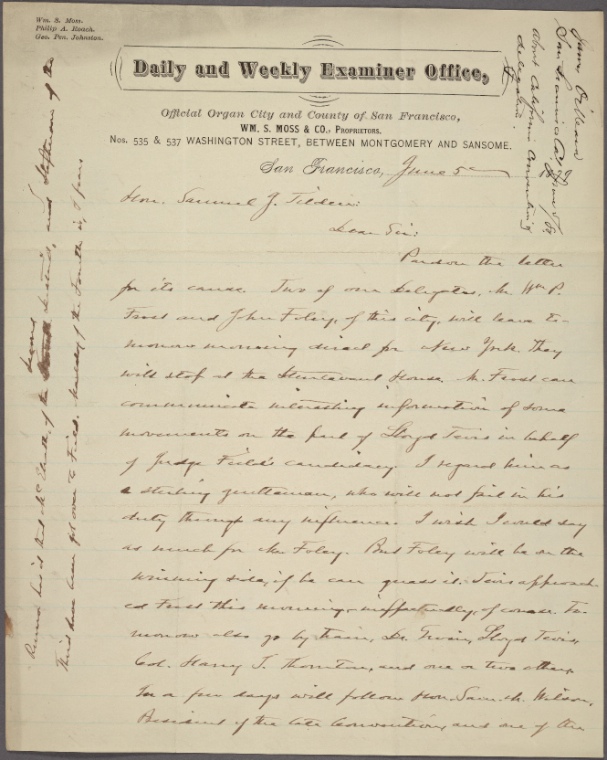 Wm. S. Moss.
Philip A. Roach.
Geo. Pen. Johnston.
Daily and Weekly Examiner Office,
Official Organ City and County of San Francisco,
WM. S. MOSS & CO., PROPRIETORS.
Nos. 535 & 537 WASHINGTON STREET, BETWEEN MONTGOMERY AND SANSOME.
San Francisco, June 5
San Francisco Cal
about California
delegation.
Hon. Samuel J. Tilden:
Dear Sir:
Pardon the letter
for its cause. Two of our Delegates, Mr Wm P.
Frost and John Foley, of this city, will leave to-
morrow morning direct for New York. They
will stop at the Sturtevant House. Mr. Frost can
communicate interesting information of some
movements on the part of Lloyd Tevis in behalf
of Judge Field's candidacy. I regard him as
a sterling gentleman, who will not fail in his
duty through any influence. I wish I could say
as much for Mr Foley. But Foley will be on the
winning side, if he can guess it. Tevis approach
ed Frost this morning, ineffectually, of course. To-
morrow also go by train, Dr. Lloyd Tevis,
Col. Harry I. Thornton, and one or two others.
In a few days will follow Hon. Sam. M. Wilson,
President of the late Convention, and one of the
Rumor has it that of the Second, and of the
Third have been got over to Field. of the Fourth is, I fear